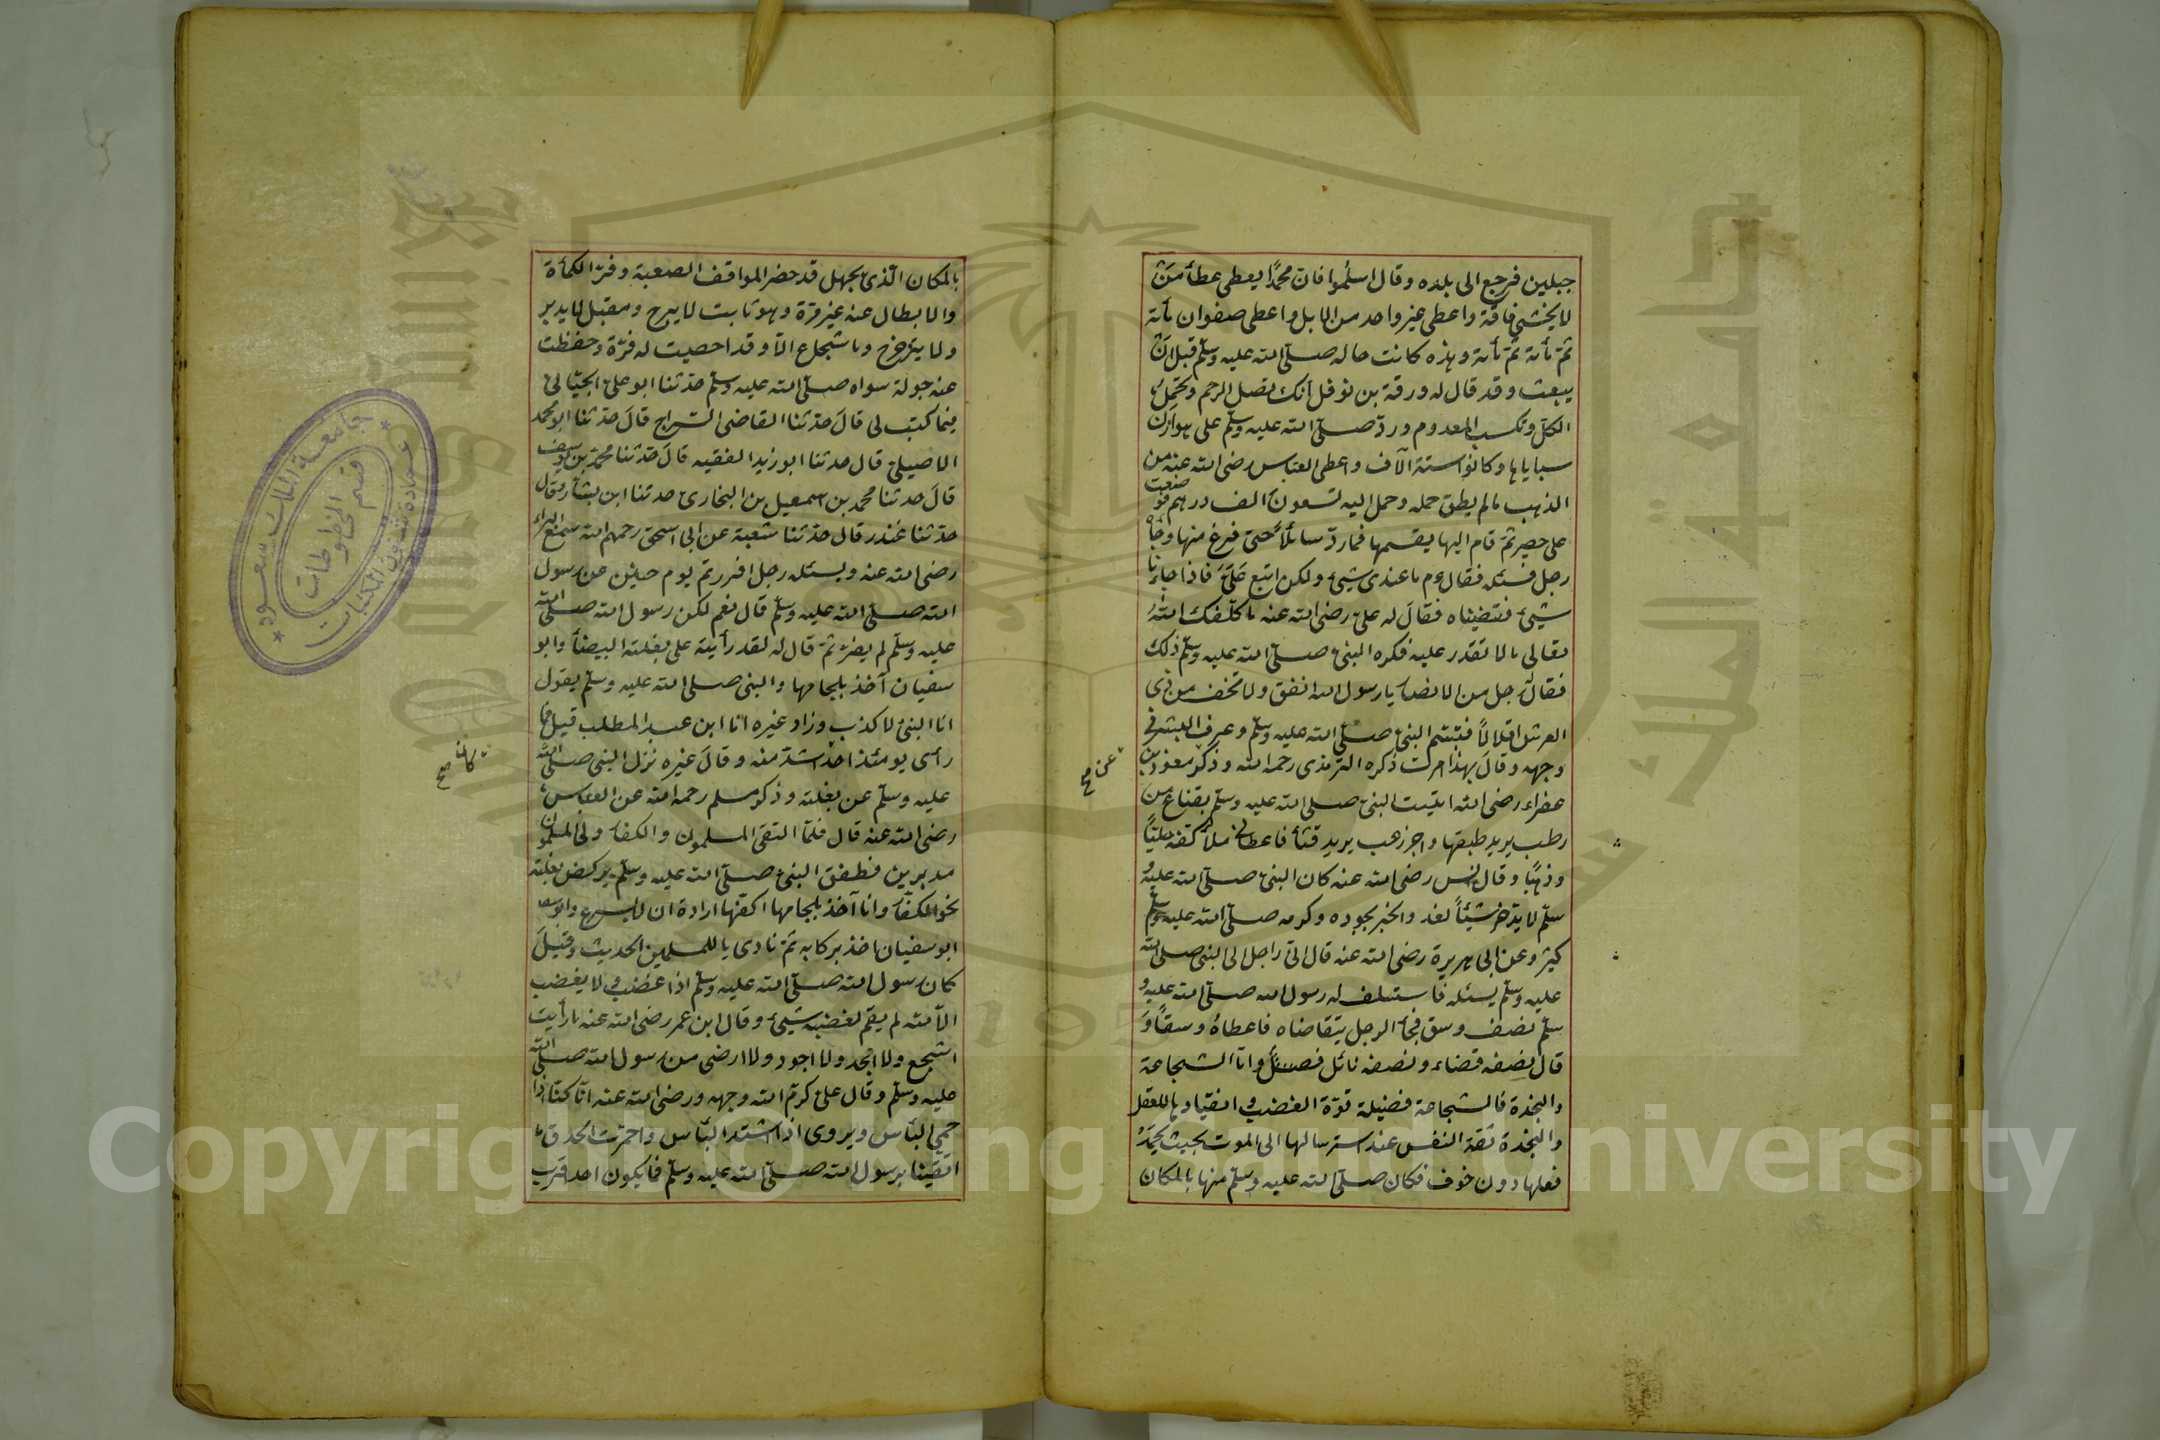 جبلين فرجع الى بلده وقال اسلموا فان محمدًا يعطى عطأ مَنْ
لا يخشى فاقة واعطى غير واحد من الابل واعطى صفوان مأنة
ثمّ مأنة ثمّ مأنة وهذه كانت حاله صلّى الله عليه وسلّم قبل اَنْ
يبعث وقد قال له ورقة بن نوفل انك تصل الرحم وتحمل
الكلّ وتكسب المعدوم وردّ صلّى الله عليه وسلّم على هوازن
سباياها وكانوا ستة آلاف واعطى العباس رضى الله عنه من
الذهب مالم يطق حمله وحمل اليه تسعون الف درهم فوضعت
على حصير ثمّ قام اليها يقسمها فما ردّ سائلاً حتى فرغ منها وجأ
رجل فسئله فقال وم ما عندى شيئ ولكن ابتع عَلَىَّ فاذا جاءنا
شيئ قضيناه فقال له على رضى الله عنه ما كلّفك اللهُ
تعالى مالا تقدر عليه فكره النبى صلّى الله عليه وسلّم ذلك
فقال رجل من الانصار يا رسول الله انفق ولا تخف من ذى
العرش اقلالاً فتبسّم النبى صلّى الله عليه وسلّم وعرف البشر فى
وجهه وقال بهذا امرت ذكره الترمذى رحمه الله وذكر معوذ بن
عفراء رضى الله اتيت النبى صلّى الله عليه وسلّم بقناع من
رطب يريد طبقها واجر زغب يريد قثأ فاعطانى ملأ كفه حليّاً
وذهبًا وقال انس رضى الله عنه كان النبى صلّى الله عليه و
سلّم لا يدّخر شيئاً لغد والخبر بجوده وكرمه صلّى الله عليه وسلّم
كثير وعن ابى هريرة رضى الله عنه قال اتى راجل الى النبى صلى الله
عليه وسلّم يسئله فاستسلف له رسول الله صلّى الله عليه و
سلّم نصف وسق فجأ الرجل يتقاضاه فاعطاهُ وسقًا وَ
قال نصفه قضاء ونصفه نائل فصل وامّا الشجاعة
والنجدة فالشجاعة فضيلة قوّة الغضب وانقيادها للعقل
والنجدة ثقة النفس عند استرسالها الى الموت بحيث يُحمَدُ
فعلها دون خوف فكان صلّى الله عليه وسلّم منها بالمكان
عن صح
بالمكان الّذى يجهل قد حضر المواقف الصعبة وفرّ الكمأة
والابطال عنه غير مرّة وهو ثابت لا يبرح ومقبل لا يدبر
ولا يتزحزح وما شجاع الاّ وقد احصيت له فرّة وحفظت
عنه جولة سواه صلّى الله عليه وسلّم حدّثنا ابو على الجيّانى
فيما كتب لى قال حدّثنا القاضى السّراج قال حدّثنا ابو محمد
الاصيلى قال حدثنا ابو زيد الفقيه قال حدّثنا محمد بن يوسف
قال حدثنا محمد بن اسمعيل بن البخارى حدثنا ابن بشار وقال
حدّثنا غندر قال حدّثنا شعبة عن ابى اسحق رحمهم الله سمع البراء
رضى الله عنه ويسئله رجل افررتم يوم حنين عن رسول
الله صلّى الله عليه وسلّم قال نعم لكن رسول الله صلّى الله
عليه وسلّم لم يفرّ ثمّ قال له لقد رأيته على بغلته البيضأ وابو
سفيان آخذ بلجامها والنبى صلى الله عليه وسلّم يقول
انا النبىّ لا كذب وزاد غيره انا ابن عبد المطلب قيل فما
رأى يومئذ احد اشدّ منه وقال غيره نزل النبى صلى الله
عليه وسلّم عن بغلته وذكر مسلم رحمه الله عن العباس
رضى الله عنه قال فلمّا التقى المسلمون والكفار ولّى المسلمون
مدبرين فطفق النبى صلّى الله عليه وسلّم يركض بغلته
نحو الكفّار وانا آخذ بلجامها اكفّها ارادة ان لا يسرع وابو
ابو سفيان اخذ بركابه ثمّ نادى يا للمسلمين الحديث وقيل
كان رسول الله صلّى الله عليه وسلّم اذا غضب ولا يغضب
الاّ لله لم يقم لغضبه شيئ وقال ابن عمر رضى الله عنه ما رأيت
اشجع ولا انجد ولا اجود ولا ارضى من رسول الله صلّى الله
عليه وسلّم وقال على كرّم الله وجهه ورضى الله عنه انّا كنّا اذا
حمى البأس ويروى اذا اشتدّ البأس واحمرّت الحدق
اتّقينا برسول الله صلّى الله عليه وسلّم فما يكون احد اقرب
كان صح
جامعة الملك سعود
عمادة شئون المكتبات
قسم المخطوطات
جامعة الملك سعود
1957
Copyright © King Saud University